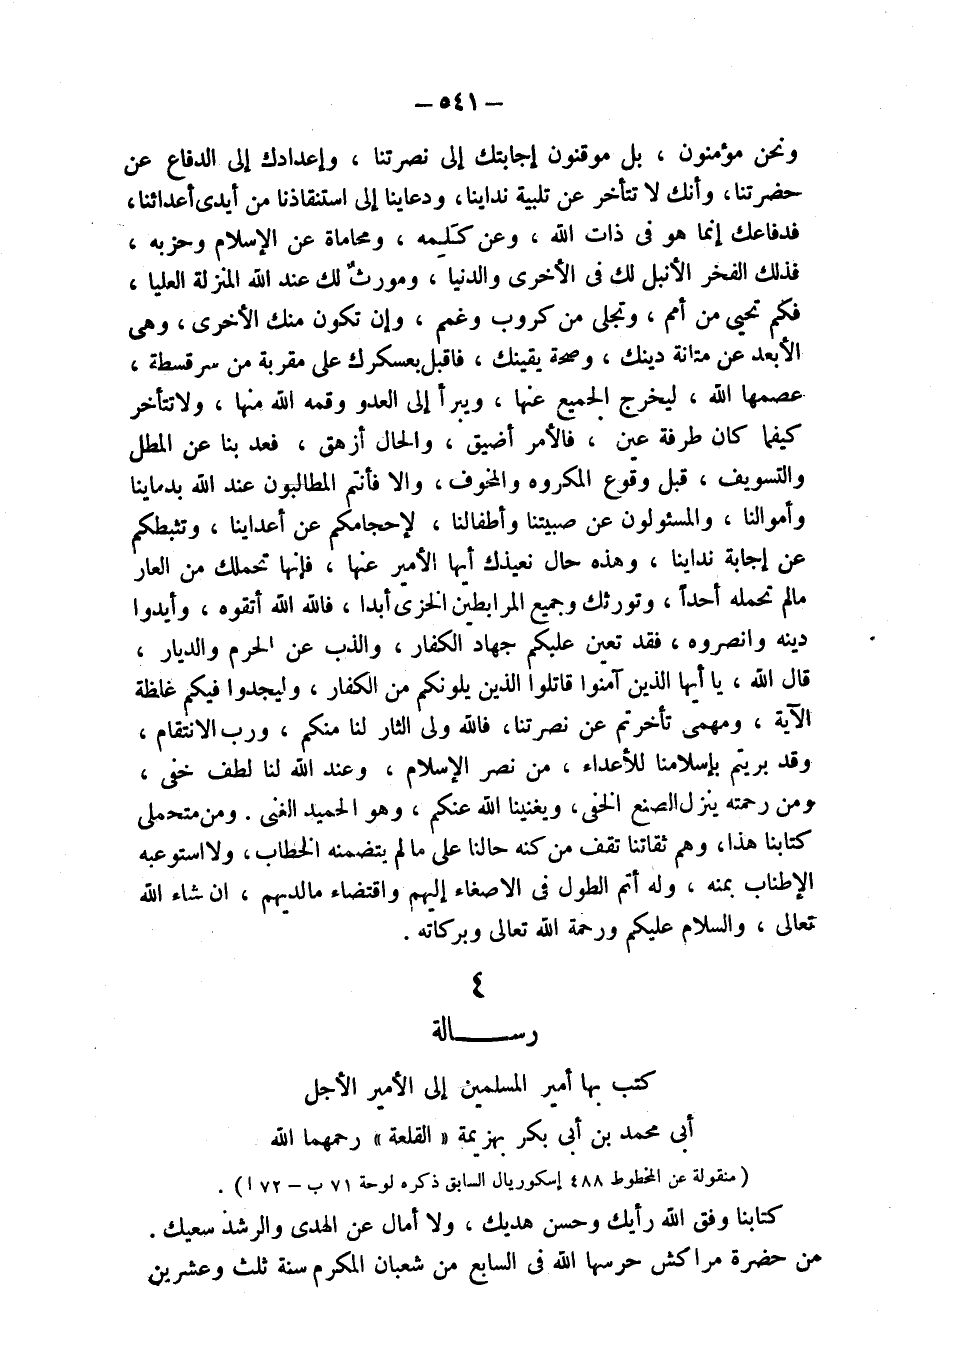 — ٥٤١ —
ونحن مؤمنون ، بل موقنون إجابتك إلى نصرتنا ، وإعدادك إلى الدفاع عن
حضرتنا، وأنك لا تتأخر عن تلبية نداينا، ودعاينا إلى استنقاذنا من أيدى أعدائنا،
فدفاعك إنما هو فى ذات الله ، وعن كلمه ، ومحاماة عن الإسلام وحزبه ،
فذلك الفخر الأنبل لك فى الأخرى والدنيا ، ومورثٌ لك عند الله المنزلة العليا ،
فكم تحيى من أمم ، وتجلى من كروب وغمم ، وإن تكون منك الأخرى ، وهى
الأبعد عن متانة دينك ، وصحة يقينك ، فاقبل بعسكرك على مقربة من سرقسطة ،
عصمها الله ، ليخرج الجميع عنها ، ويبرأ إلى العدو وقمه الله منها ، ولا تتأخر
كيفما كان طرفة عين ، فالأمر أضيق ، والحال أزهق ، فعد بنا عن المطل
والتسويف ، قبل وقوع المكروه والمخوف ، والا فأنتم المطالبون عند الله بدماينا
وأموالنا ، والمسئولون عن صبيتنا وأطفالنا ، لإحجامكم عن أعداينا ، وتثبطكم
عن إجابة نداينا ، وهذه حال نعيذك أيها الأمير عنها ، فإنها تحملك من العار
مالم تحمله أحداً ، وتورثك وجميع المرابطين الخزى أبدا ، فالله الله أتقوه ، وأيدوا
دينه وانصروه ، فقد تعين عليكم جهاد الكفار ، والذب عن الحرم والديار ،
قال الله ، يا أيها الذين آمنوا قاتلوا الذين يلونكم من الكفار ، وليجدوا فيكم غلظة
الآية ، ومهمى تأخرتم عن نصرتنا، فالله ولى الثار لنا منكم ، ورب الانتقام ،
وقد بريتم بإسلامنا للأعداء ، من نصر الإسلام ، وعند الله لنا لطف خفى ،
ومن رحمته ينزل الصنع الخفى، ويغنينا الله عنكم ، وهو الحميد الغنى . ومن متحملى
كتابنا هذا، وهم ثقاتنا تقف من كنه حالنا على مالم يتضمنه الخطاب، ولا استوعبه
الإطناب بمنه ، وله أتم الطول فى الاصغاء إليهم واقتضاء مالديهم ، ان شاء الله
تعالى ، والسلام عليكم ورحمة الله تعالى وبركاته .
٤
رسالة
كتب بها أمير المسلمين إلى الأمير الأجل
أبي محمد بن أبي بكر بهزيمة « القلعة » رحمهما الله
( منقولة عن المخطوط ٤٨٨ إسكوريال السابق ذكره لوحة ٧١ ب – ٧٢ ا ) .
كتابنا وفق الله رأيك وحسن هديك ، ولا أمال عن الهدى والرشد سعيك .
من حضرة مراكش حرسها الله فى السابع من شعبان المكرم سنة ثلث وعشرين